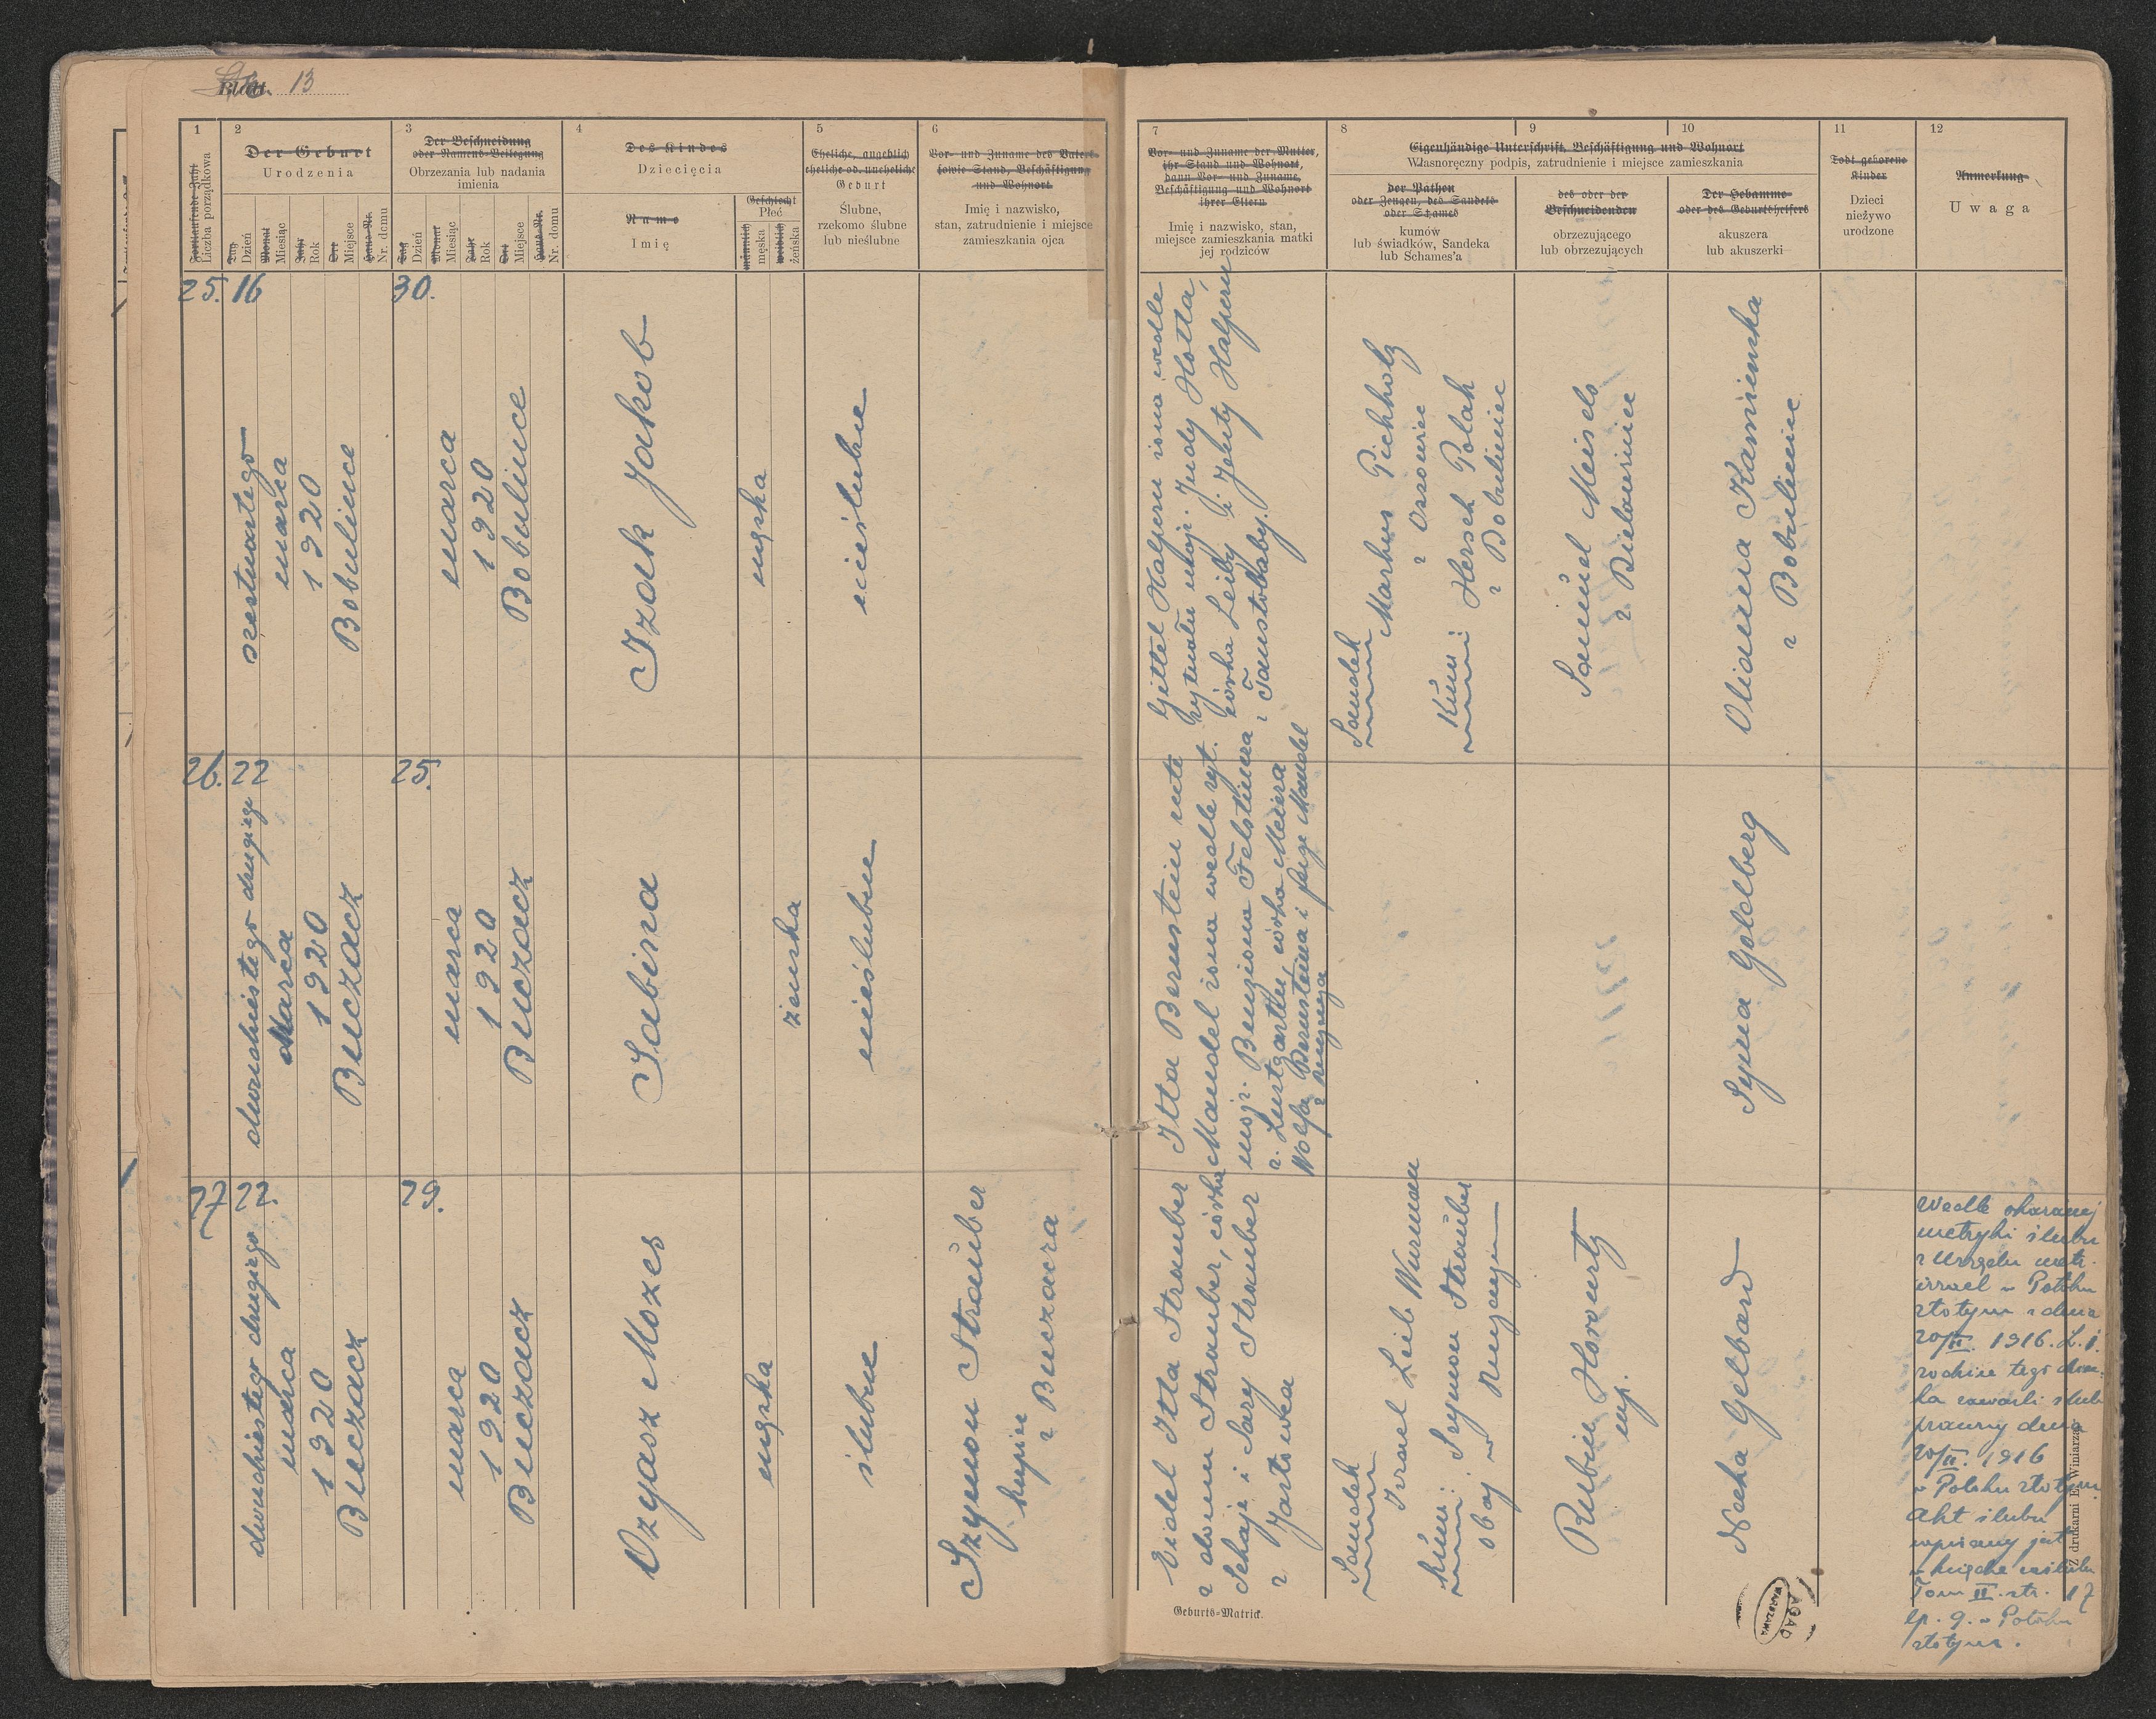 Str. 13
1
Fortlaufende Zahl
Liczba porządkowa
2
Der Geburt
Urodzenia
Tag
Dzień
Monat
Miesiąc
Jahr
Rok
Ort
Miejsce
Haus-Nr.
Nr. domu
3
Der Beschneidung
oder Namens-Beilegung
Obrzezania lub nadania
imienia
Tag
Dzień
Monat
Miesiąc
Jahr
Rok
Ort
Miejsce
Haus-Nr.
Nr. domu
4
Des Kindes
Dziecięcia
Name
Imię
Geschlecht
Płeć
männlich
męska
weiblich
żeńska
5
Eheliche, angeblich
eheliche od. uneheliche
Geburt
Ślubne,
rzekomo ślubne
lub nieślubne
6
Vor- und Zuname des Vaters
sowie Stand, Beschäftigung
und Wohnort
Imię i nazwisko,
stan, zatrudnienie i miejsce
zamieszkania ojca
7
Vor- und Zuname der Mutter,
ihr Stand und Wohnort,
dann Vor- und Zuname,
Beschäftigung und Wohnort
ihrer Eltern
Imię i nazwisko, stan,
miejsce zamieszkania matki
jej rodziców
Eigenhändige Unterschrift, Beschäftigung und Wohnort
Własnoręczny podpis, zatrudnienie i miejsce zamieszkania
8
der Pathen
oder Zeugen, des Sandeks
oder Schames
kumów
lub świadków, Sandeka
lub Schames'a
9
des oder der
Beschneidenden
obrzezującego
lub obrzezujących
10
Der Hebamme
oder des Geburtshelfers
akuszera
lub akuszerki
11
Todt geborene
Kinder
Dzieci
nieżywo
urodzone
12
Anmerkung
Uwaga
25.
16
szesnastego
marca
1920
Bobulińce
30.
marca
1920
Bobulińce
Izak Jakob
męska
nieślubne
Gittel Halpern żona wedle
rytuału mojż. Judy Hotta,
córka Leiby i Jehity Halpern
z Taustobaby.
Sandek
Markus Pichholz
z Ossowiec
Kum: Hersch Polak
z Bobuliniec
Samuel Meisels
z Bielawiniec
Oliana Kamieńska
z Bobuliniec
26.
22
dwudziestego drugiego
Marca
1920
Buczacz
25.
marca
1920
Buczacz
Sabina
żeńska
nieślubne
Itta Bernstein recte
Mandel żona wedle ryt.
mojż. Benziona Felsteina
z Lustgarten, córka Meiera
Wolfa Bernsteina i Feige Mandel
z niżynia
Syma Goldberg
27
22.
dwudziestego drugiego
marca
1920
Buczacz
29.
marca
1920
Buczacz
Ozyasz Mozes
męska
ślubne
Szymon Strauber
kupiec
z Buczacza
Eidel Itta Strauber
z domu Strauber, córka
Schaje i Sary Strauber
z Jazłowca
Sandek
Izrael Leib Wurman
kum: Szymon Strauber
obaj w
Rubin Horowitz
mp.
Necha Gelbard
Wedle okazanej
metryki ślubu
z Urzędu metr.
izrael w Potoku
złotym z dnia
20/II. 1916. L. 1.
rodzice tego dziec-
ka zawarli ślub
prawny dnia
20/II. 1916
w Potoku złotym.
Akt ślubu
wpisany jest
w księdze
Tom II. str. 17
lp. 9. w Potoku
złotym.
Geburts-Matrick.
Z drukarni E. Winiarza
AGAD
WARSZAWA